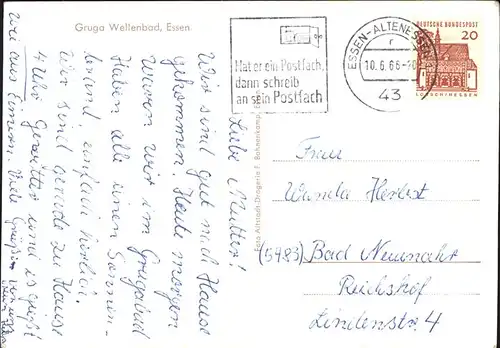 Gruga Wellenbad, Essen.
Hat er ein Postfach,
dann schreib
an sein Postfach
ESSEN-ALTENESSEN
r
10.6.66-
43
DEUTSCHE BUNDESPOST
20
LORSCH/HESSEN
Foto Altstadt-Drogerie F. Bohnenkamp, Essen
Liebe Mutter!
Wir sind gut nach Hause
gekommen. Heute morgen
waren wir im Grugabad
Haben alle einen Sonnen-
brand einfach herrlich.
Wir sind gerade zu Hause
4 Uhr Gewitter und es gießt
wie aus Eimern. Viele Grüße
Frau
Wanda Herbst
(5483) Bad Neuenahr
Reichshof
Lindenstr. 4